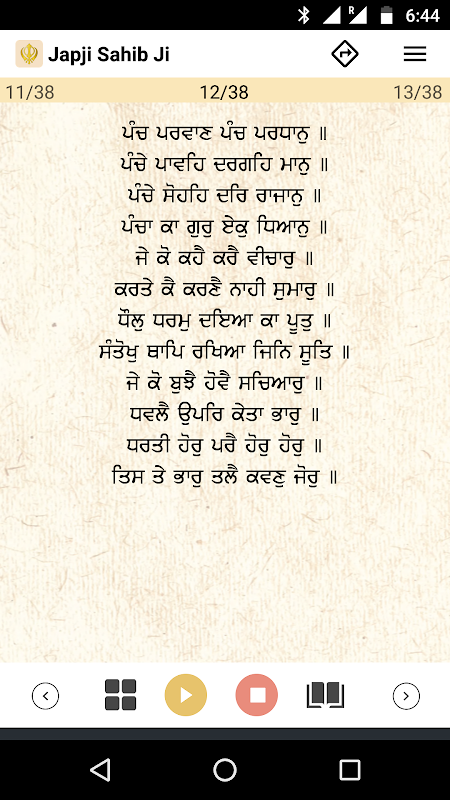 R
6:44
Japji Sahib Ji
11/38 12/38 13/38
ਪੰਚ ਪਰਵਾਣ ਪੰਚ ਪਰਧਾਨੁ ॥
ਪੰਚੇ ਪਾਵਹਿ ਦਰਗਹਿ ਮਾਨੁ ॥
ਪੰਚੇ ਸੋਹਹਿ ਦਰਿ ਰਾਜਾਨੁ ॥
ਪੰਚਾ ਕਾ ਗੁਰੁ ਏਕੁ ਧਿਆਨੁ ॥
ਜੇ ਕੋ ਕਹੈ ਕਰੈ ਵੀਚਾਰੁ ॥
ਕਰਤੇ ਕੈ ਕਰਣੈ ਨਾਹੀ ਸੁਮਾਰੁ ॥
ਧੌਲੁ ਧਰਮੁ ਦਇਆ ਕਾ ਪੂਤੁ ॥
ਸੰਤੋਖੁ ਥਾਪਿ ਰਖਿਆ ਜਿਨਿ ਸੂਤਿ ॥
ਜੇ ਕੋ ਬੁਝੈ ਹੋਵੈ ਸਚਿਆਰੁ ॥
ਧਵਲੈ ਉਪਰਿ ਕੇਤਾ ਭਾਰੁ ॥
ਧਰਤੀ ਹੋਰੁ ਪਰੈ ਹੋਰੁ ਹੋਰੁ ॥
ਤਿਸ ਤੇ ਭਾਰੁ ਤਲੈ ਕਵਣੁ ਜੋਰੁ ॥